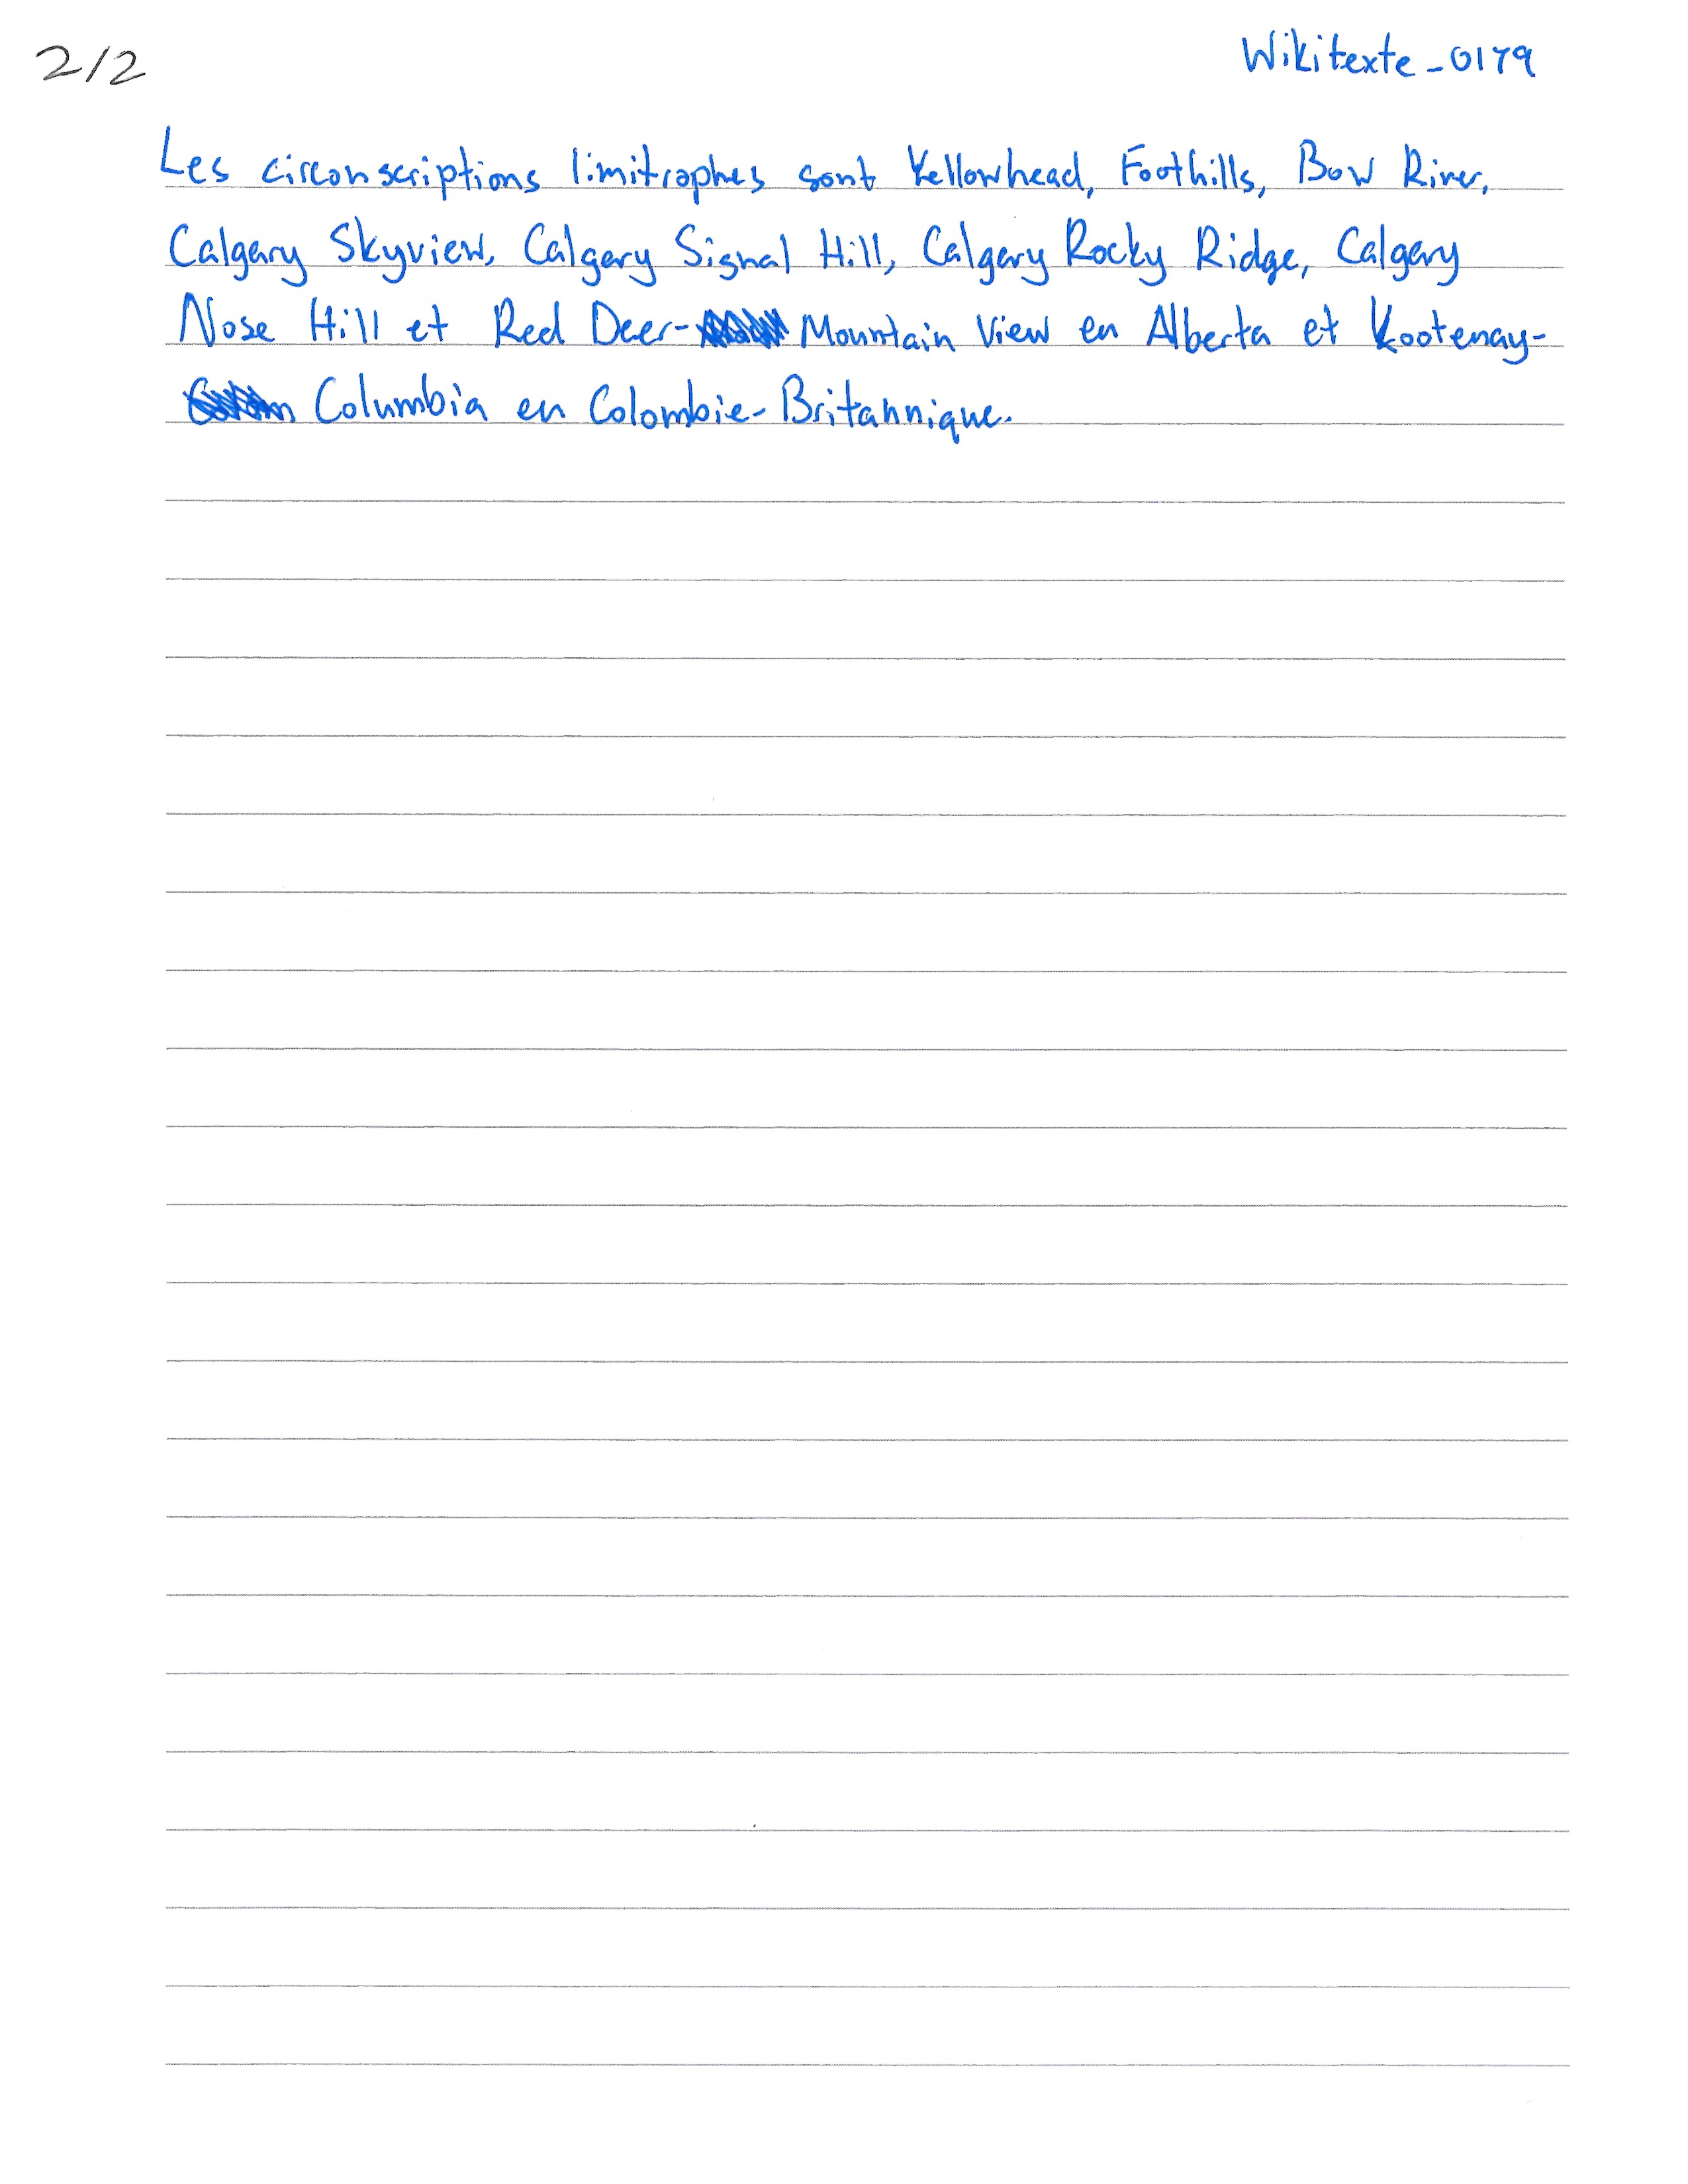 2/2
Wikitexte_0179
Les circonscriptions limitrophes sont Yellowhead, Foothills, Bow River,
Calgary Skyview, Calgary Signal Hill, Calgary Rocky Ridge, Calgary
Nose Hill et Red Deer- Mountain View en Alberta et Kootenay-
Columbia en Colombie-Britannique.